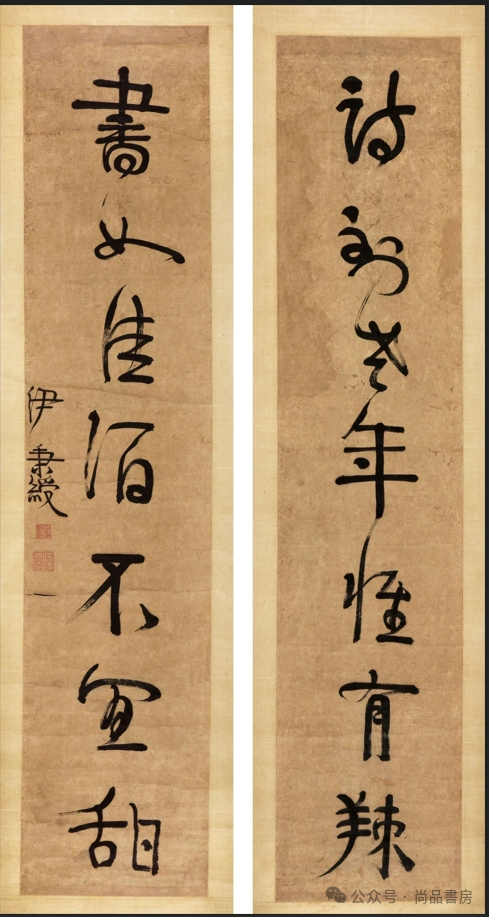 詩到老年惟有辣
書如佳酒不宜甜
伊秉綬
公众号 · 尚品書房